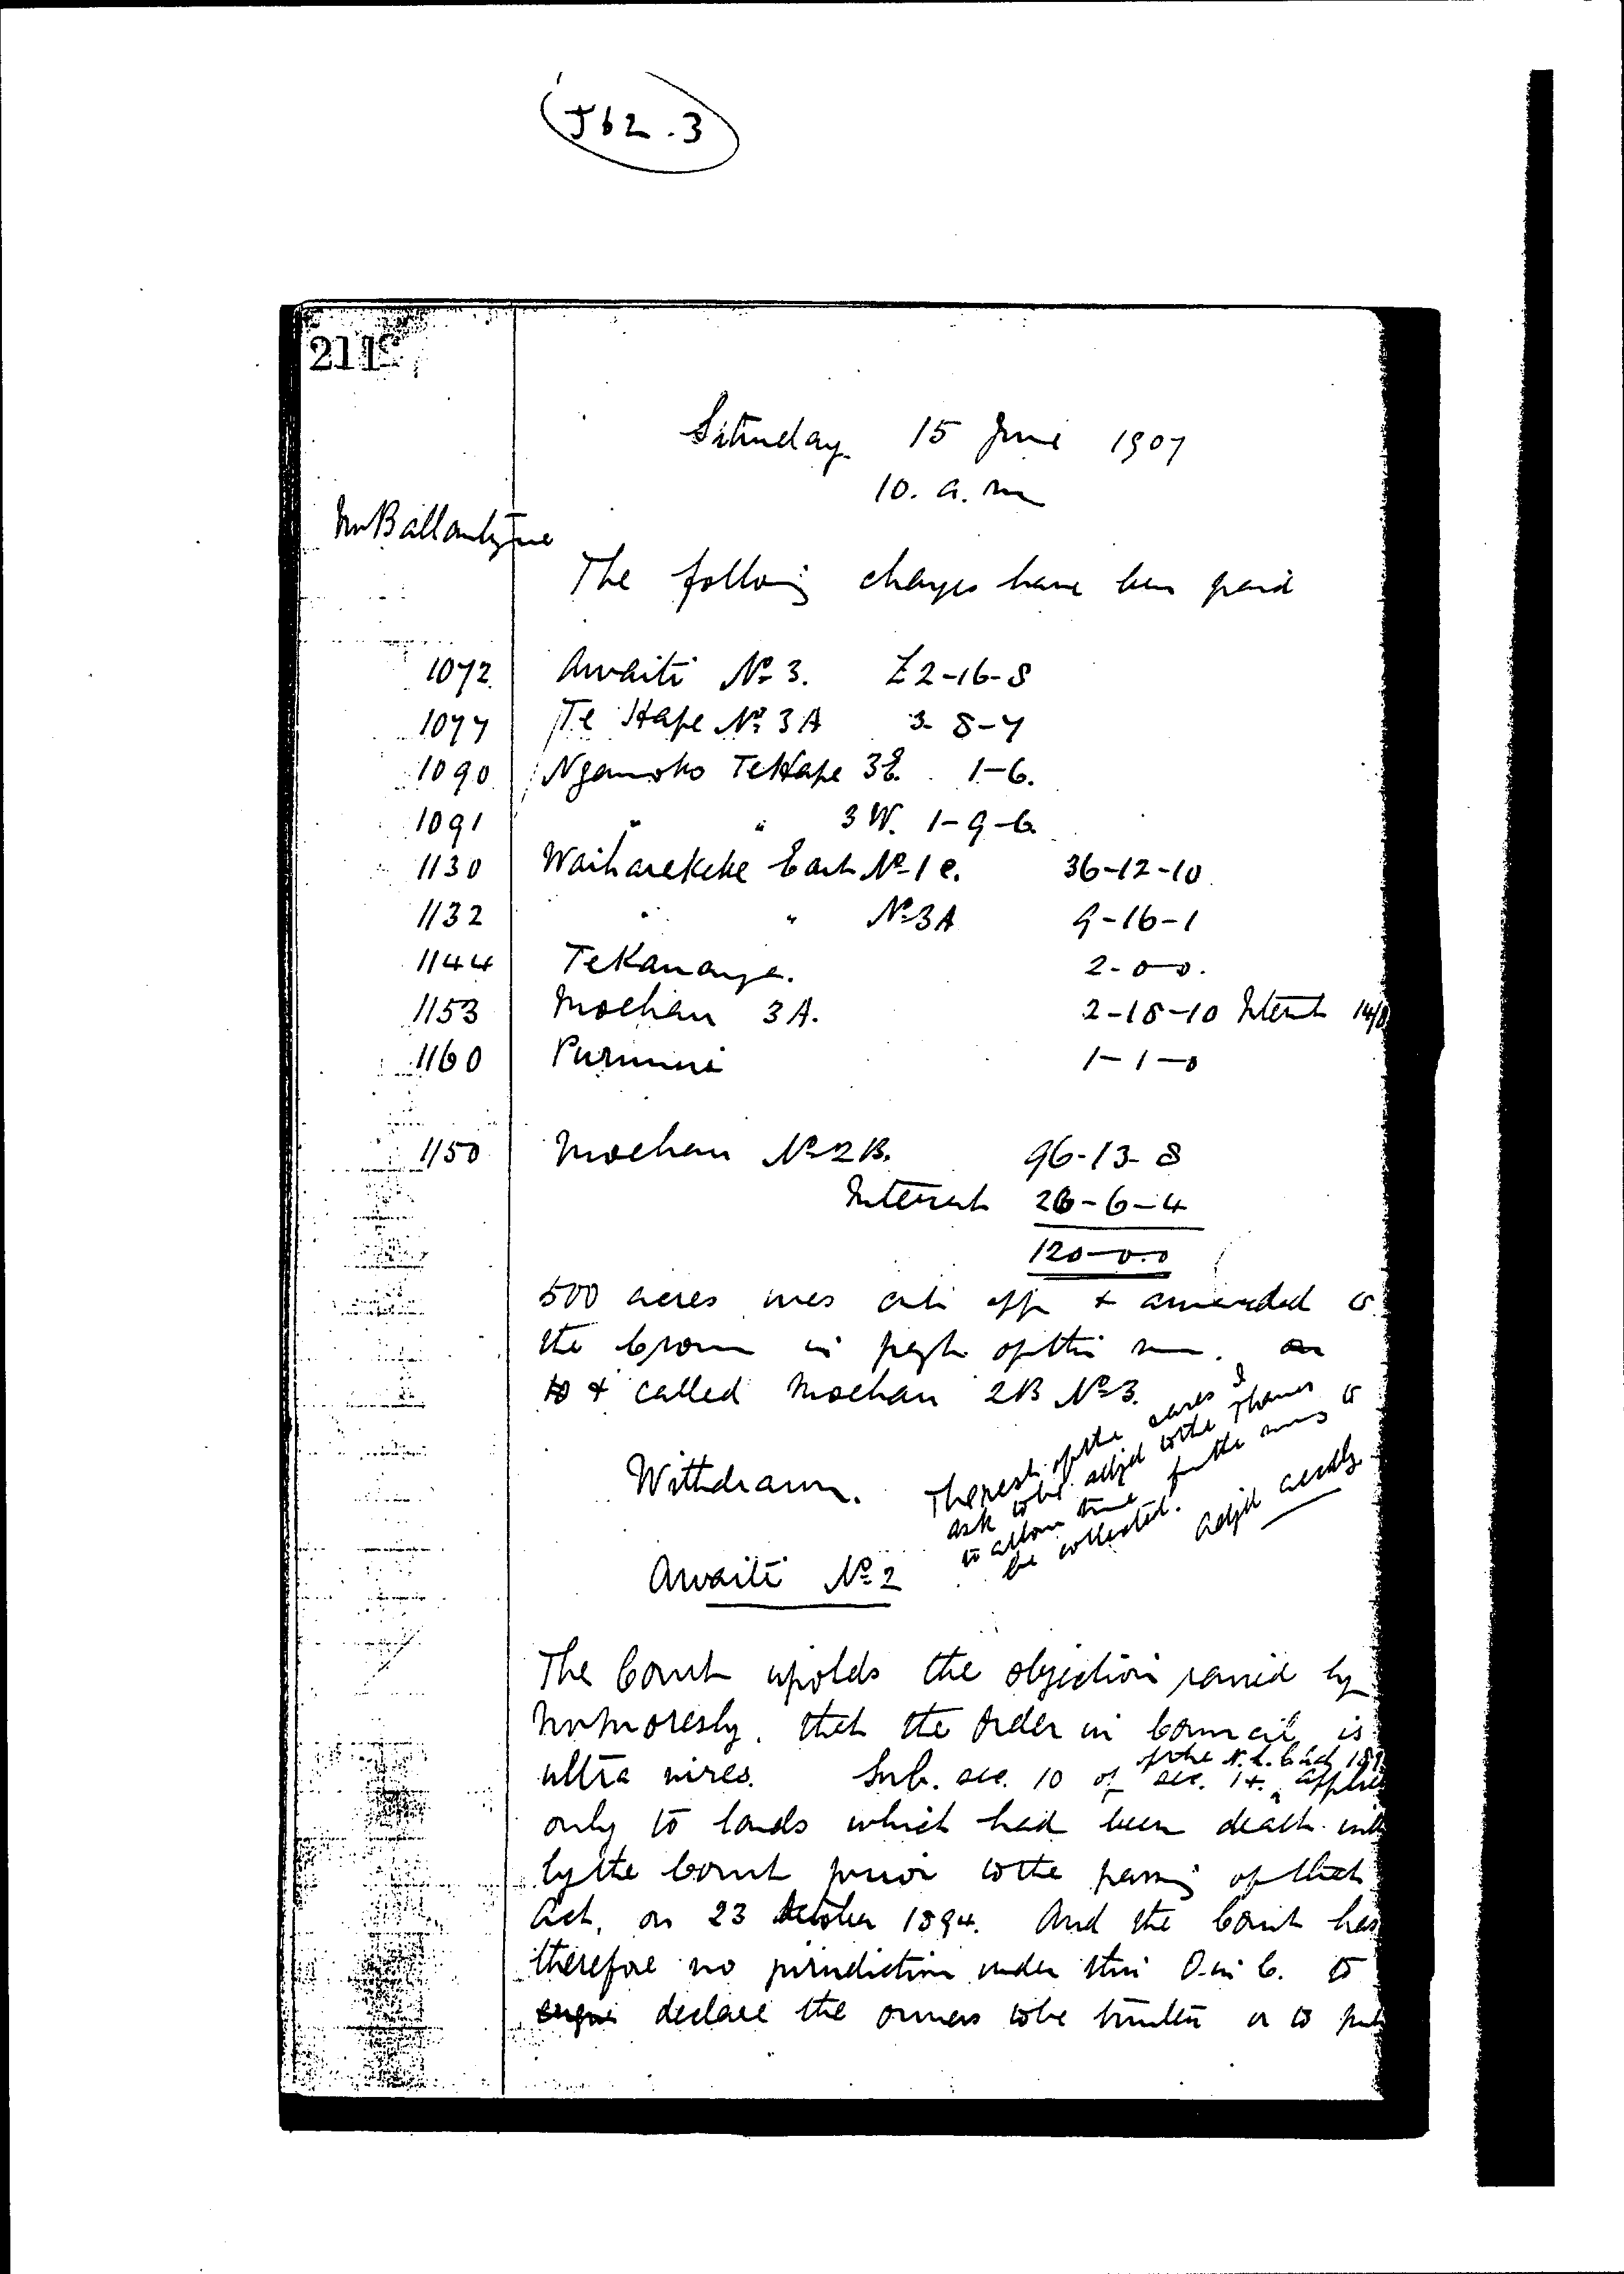 J62.3
211
Saturday 15 June 1907
10. a.m
Mr Ballantyne
The following charges have been paid
1072 Awaiti No 3. £2-16-8
1077 Te Hape No 3A 3-8-7
1090 Ngamoko Te Hape 3E. 1-6.
1091 " " 3W. 1-9-6
1130 Waiharekeke East No 1C. 36-12-10
1132 " " No 3A 9-16-1
1144 Te Kananga. 2-0-0.
1153 Moehau 3A. 2-18-10 Interest 14/8
1160 Purumui 1-1-0
1150 Moehau No 2B. 96-13-8
Interest 26-6-4
120-0-0
500 acres was cut off & awarded to
the Crown in paymt of this sum.
& called Moehau 2B No 3.
Withdrawn.
The rest of the cases I
ask to be adjd to the Thames
to allow time for the sums to
be collected. Adjd accdly
Awaiti No 2
The Court upolds the objection raised by
Mr Moresby. that the Order in Council is
ultra vires. Sub. sec. 10 of sec. 14 of the N.L.C. Act 189 applies
only to lands which had been dealt with
by the Court prior to the passing of that
Act, on 23 October 1894. And the Court has
therefore no jurisdiction under this O. in C. to
declare the owners to be trustees or to put